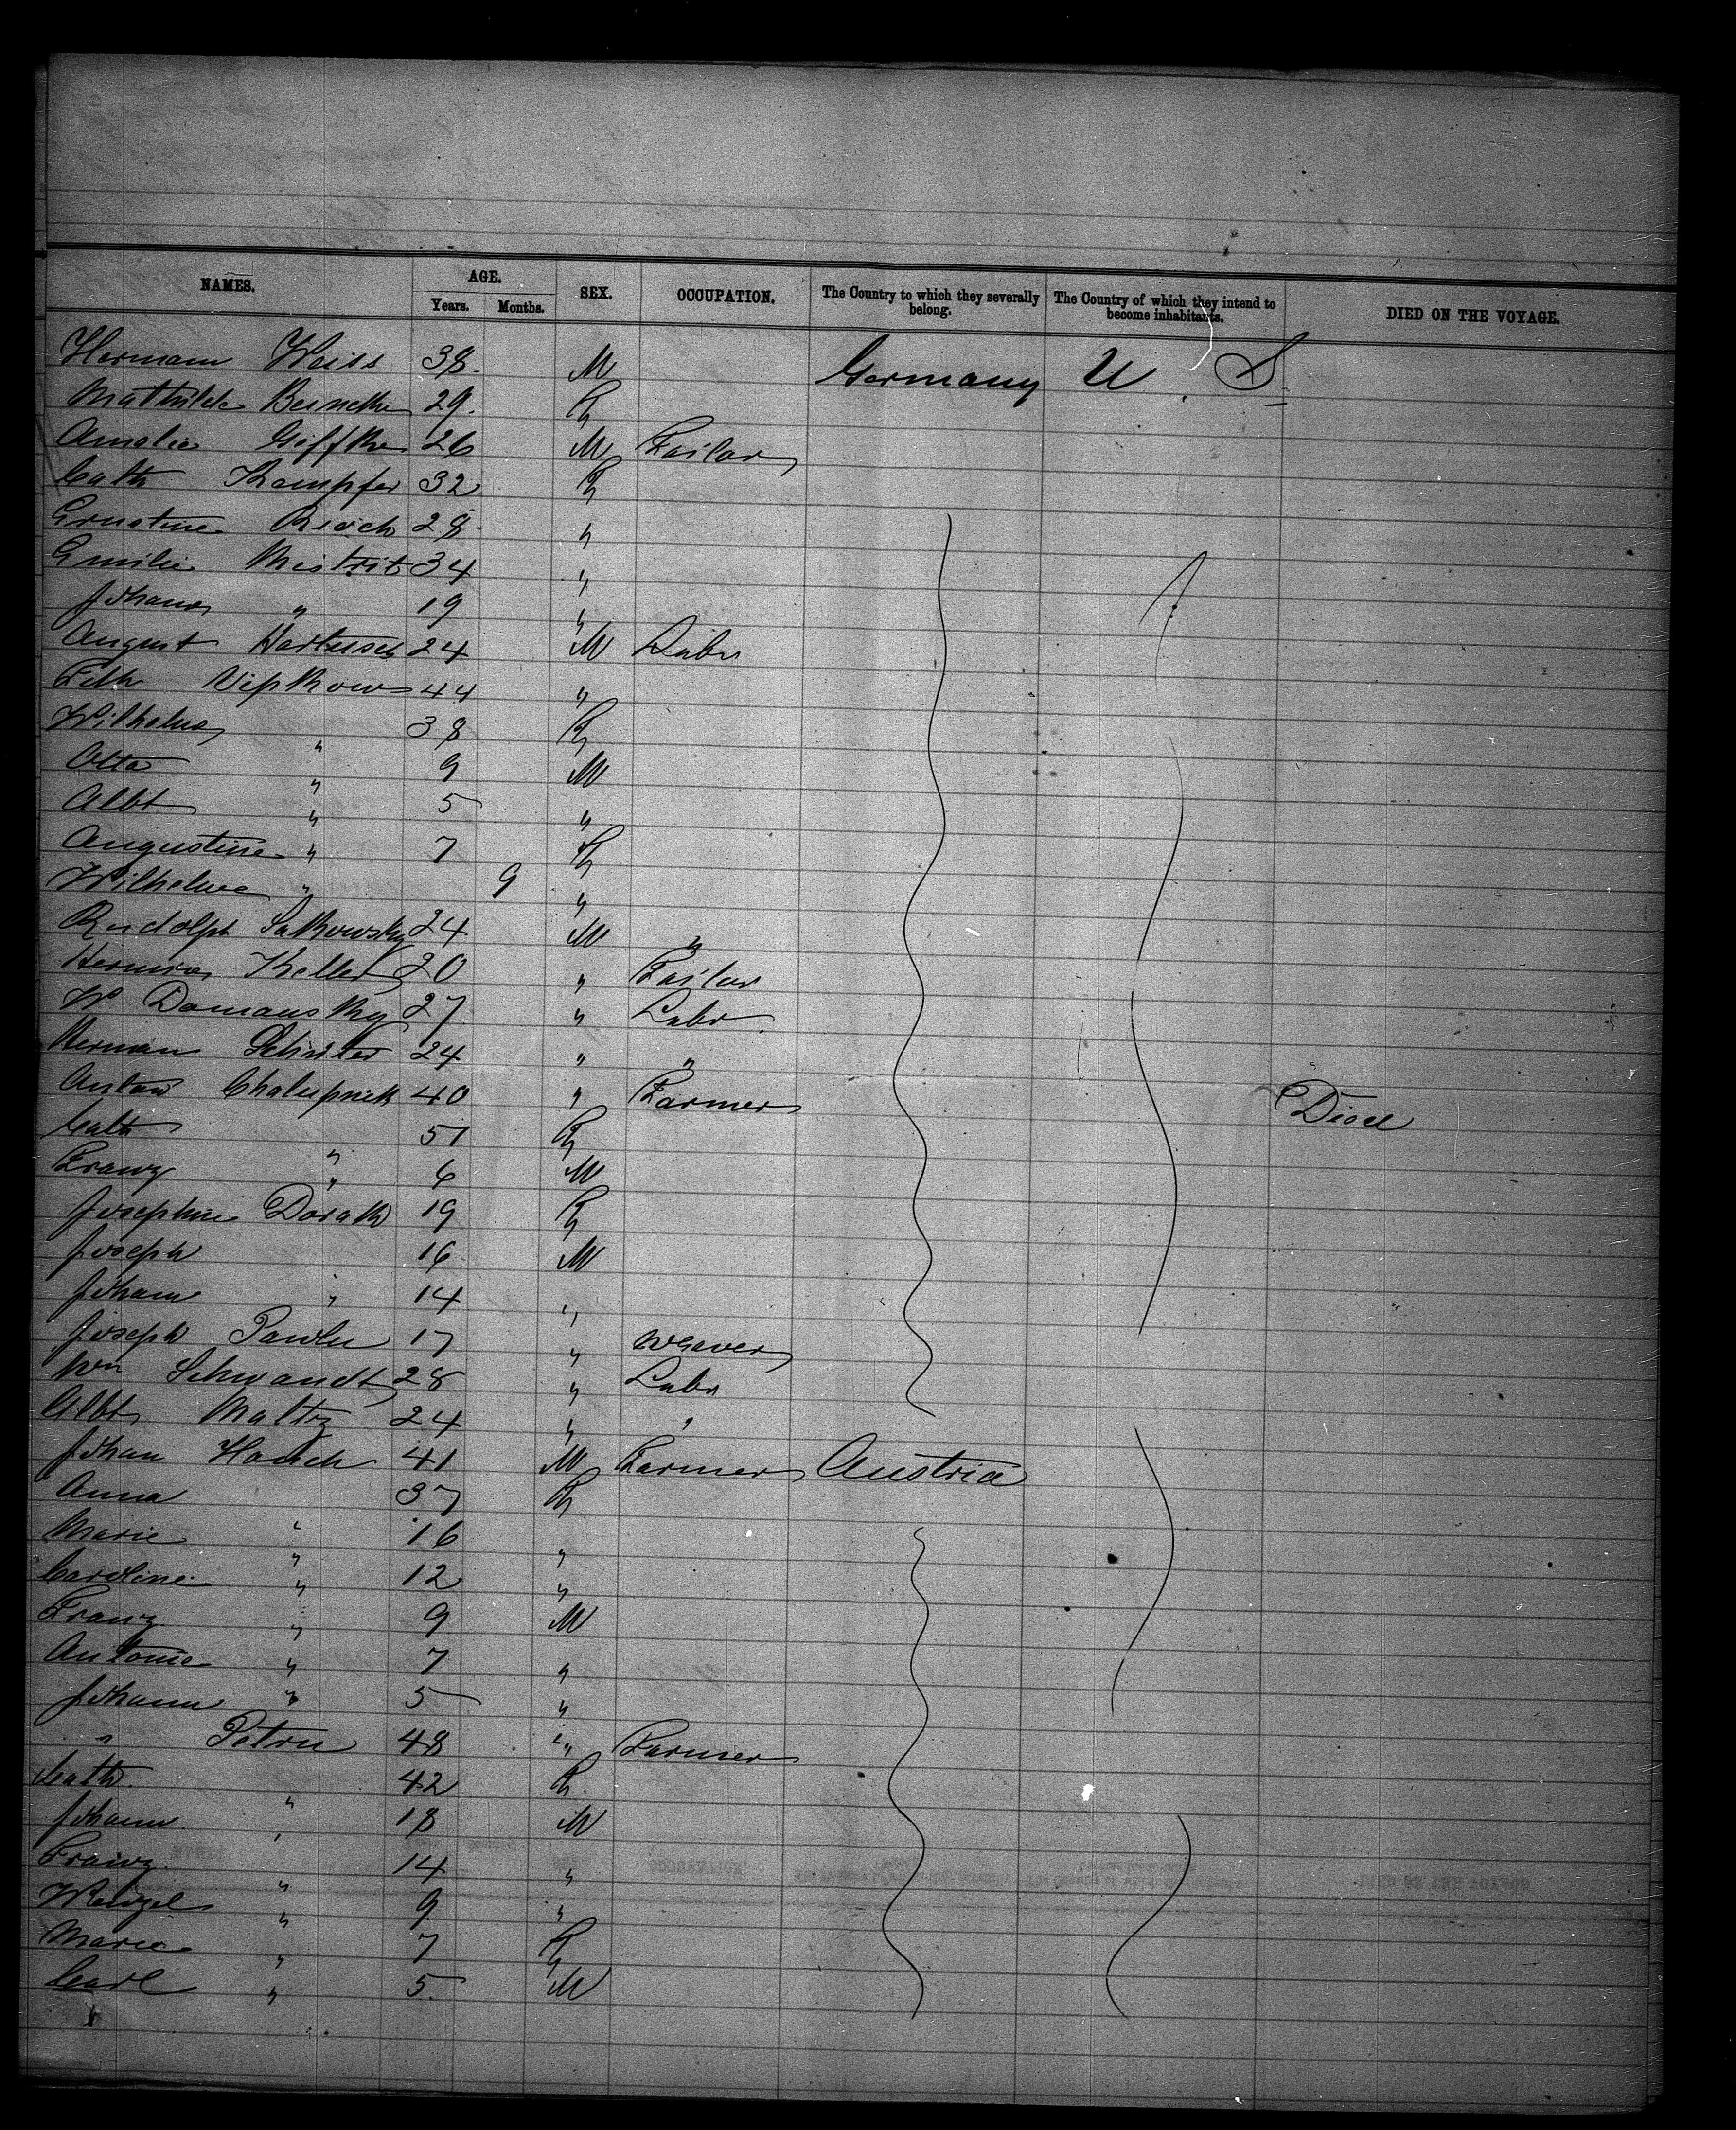 NAMES. AGE. SEX. OCCUPATION. The Country to which they severally belong. The Country of which they intend to become inhabitants. DIED ON THE VOYAGE.
Years. Months.
Hermann Weiss 38 M Germany U. S.
Mathilde Berneke 29 F
Amalie Giffke 26 M Tailor
Cath Kampfer 32 F
Ernstine Riech 28 "
Emilie Mistrit 34 "
Johann " 19 "
August Hartusch 24 M Labr
Fdk Vipkow 44 "
Wilhelm " 38 F
Otto " 9 M
Albt " 5 "
Augustine " 7 F
Wilhelme " 9 "
Rudolph Sutkowsky 24 M "
Herman Keller 20 " Tailor
W Domansky 27 " Labr
Herman Schuster 24 " "
Anton Chalupnik 40 " Farmer Died
Cath " 51 F
Franz " 6 M
Josephine Dorath 19 F
Joseph 16 M
Johann " 14 "
Joseph Pawlu 17 " Weaver
Wm Schwandt 28 " Labr
Albt Maltz 24 " "
Johan Hosch 41 M Farmer Austria
Anna 37 F
Marie " 16 "
Caroline " 12 "
Franz " 9 M
Antonie " 7 "
Johann " 5 "
" Petru 48 " Farmer
Cath " 42 F
Johann " 18 M
Franz " 14 "
Wenzel " 9 "
Marie " 7 F
Carl " 5 M